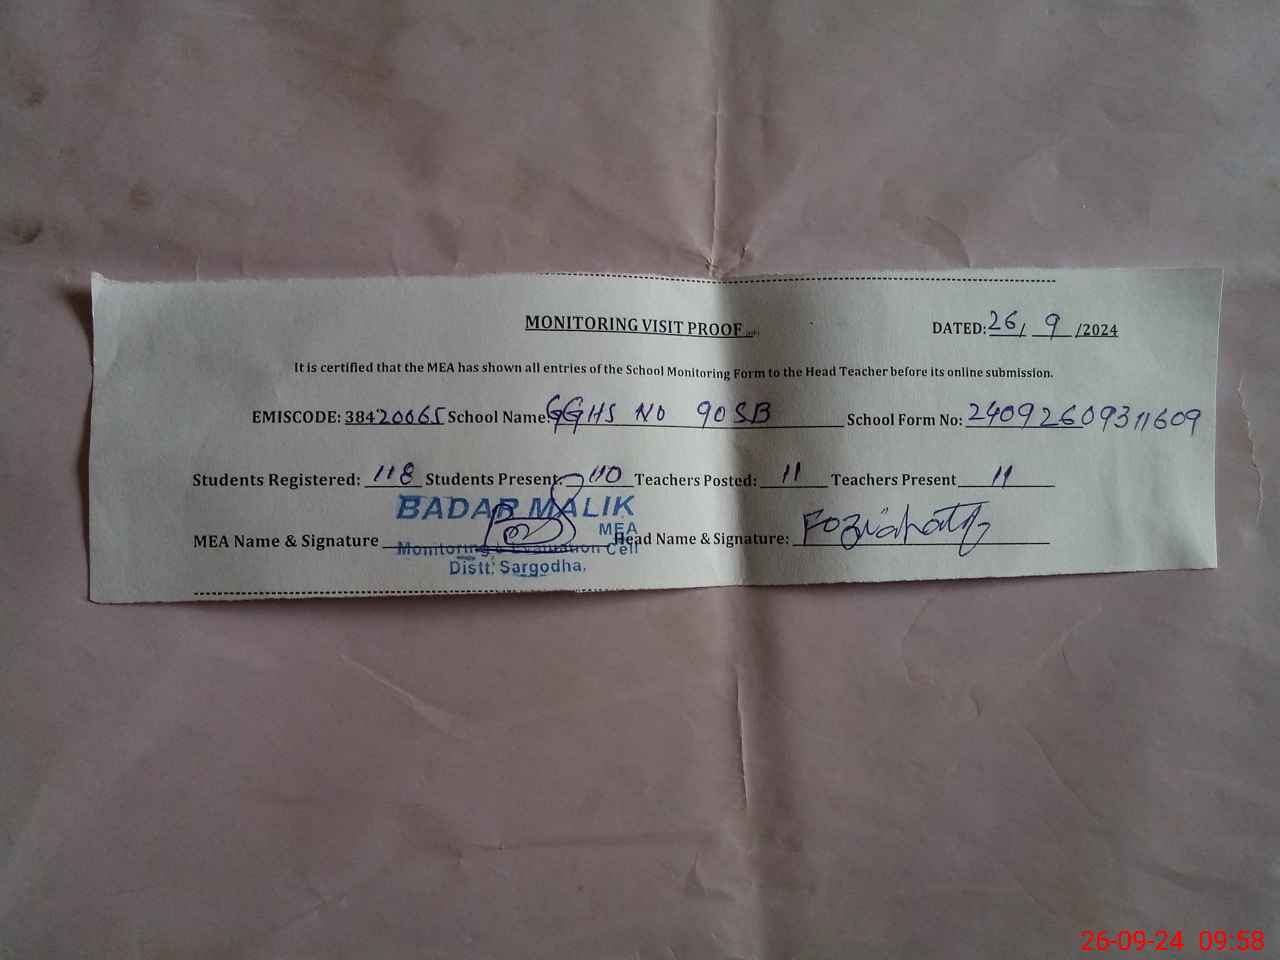 MONITORING VISIT PROOF
DATED: 26/ 9 /2024
It is certified that the MEA has shown all entries of the School Monitoring Form to the Head Teacher before its online submission.
EMISCODE: 38420065 School Name: GGHS NO 90 SB School Form No: 24092609311609
Students Registered: 118 Students Present: 110 Teachers Posted: 11 Teachers Present 11
BADAR MALIK
MEA
MEA Name & Signature Head Name & Signature:
Monitoring & Evaluation Cell
Distt. Sargodha.
26-09-24 09:58